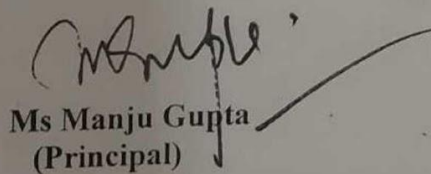 Ms Manju Gupta
(Principal)